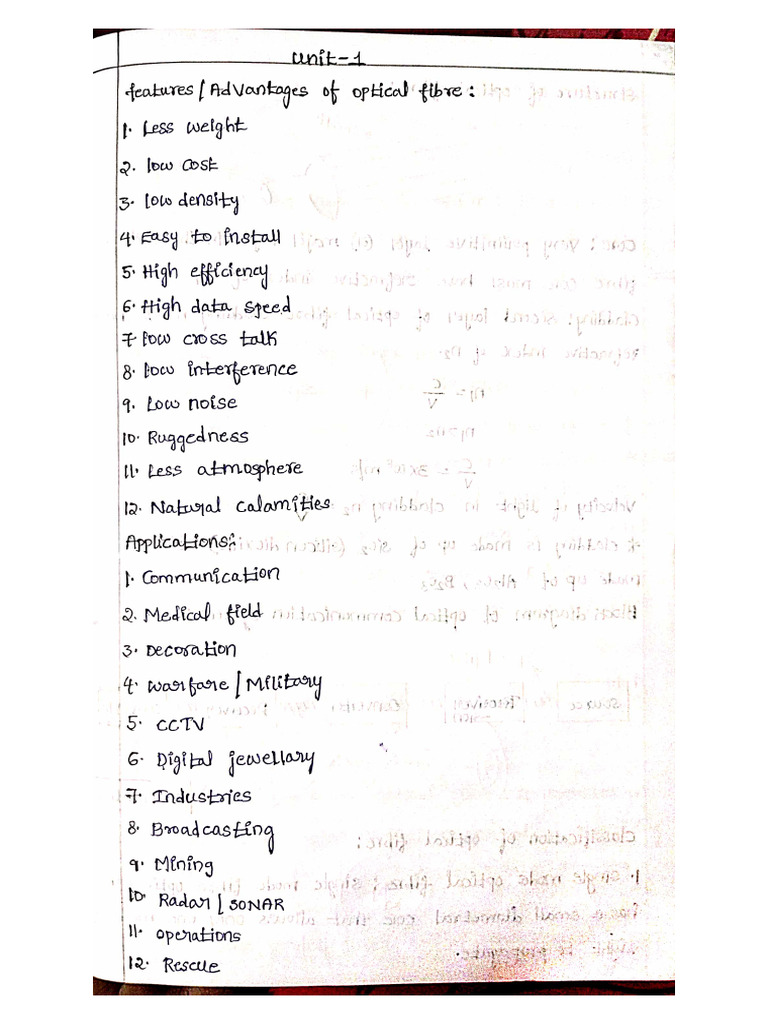 Unit-1
features/Advantages of optical fibre:
1. Less weight
2. low cost
3. low density
4. Easy to install
5. High efficiency
6. High data speed
7. low cross talk
8. low interference
9. Low noise
10. Ruggedness
11. Less atmosphere
12. Natural calamities
Applications:
1. Communication
2. Medical field
3. Decoration
4. Warfare/Military
5. CCTV
6. Digital jewellary
7. Industries
8. Broadcasting
9. Mining
10. Radar/SONAR
11. operations
12. Rescue